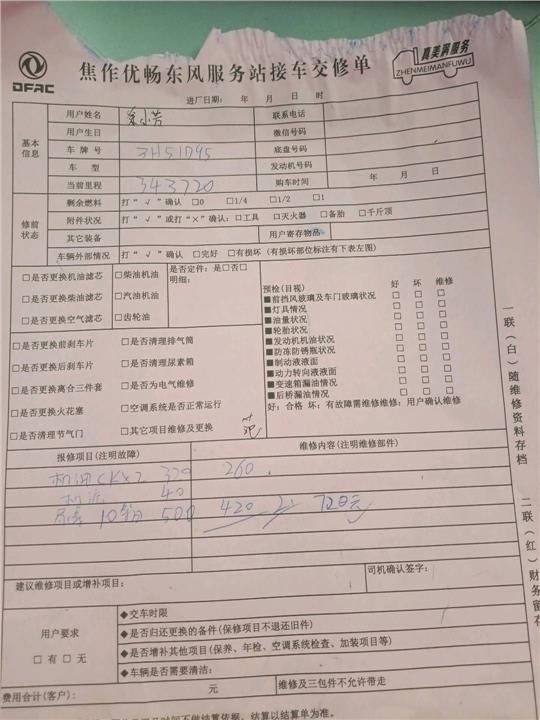 DFAC
焦作优畅东风服务站接车交修单
真美满服务
ZHENMEIMANFUWU
进厂日期： 年 月 日 时
基本信息
用户姓名 联系电话
用户生日 微信号码
车牌号 3H51D95 底盘号码
车型 发动机号码
当前里程 343720 购车时间 年 月 日
修前状态
剩余燃料 打“√”确认 □0 □1/4 □1/2 □1
附件状况 打“√”或打“×”确认：□工具 □灭火器 □备胎 □千斤顶
其它装备 用户寄存物品
车辆外部情况 打“√”确认 □完好 □有损坏（有损坏部位标注有下表左图）
□是否更换机油滤芯 □柴油机油 是否定件：是□否□
□是否更换柴油滤芯 □汽油机油 明细：
□是否更换空气滤芯 □齿轮油
□是否更换前刹车片 □是否清理排气筒
□是否更换后刹车片 □是否清理尿素箱
□是否更换离合三件套 □是否为电气维修
□是否更换火花塞 □空调系统是否正常运行
□是否清理节气门 □其它项目维修及更换
预检（目视） 好 坏 维修
■前挡风玻璃及车门玻璃状况 □ □ □
■灯具情况 □ □ □
■油量状况 □ □ □
■轮胎状况 □ □ □
■发动机机油状况 □ □ □
■防冻防锈瓶状况 □ □ □
■制动液液面 □ □ □
■动力转向液液面 □ □ □
■变速箱漏油情况 □ □ □
■后桥漏油情况 □ □ □
好：合格 坏：有故障需维修维修：用户确认维修
报修项目（注明故障） 维修内容（注明维修部件）
机油CKX2 320 260
机滤 40
10箱 500 420 720元
建议维修项目或增补项目： 司机确认签字：
用户要求
□有 □无
◆交车时限
◆是否归还更换的备件（保修项目不退还旧件）
◆是否增补其他项目（保养、年检、空调系统检查、加装项目等）
◆车辆是否需要清洁：
费用合计（客户）： 元 维修及三包件不允许带走
结算以结算单为准。
一联（白）随维修资料存档
二联（红）财务留存